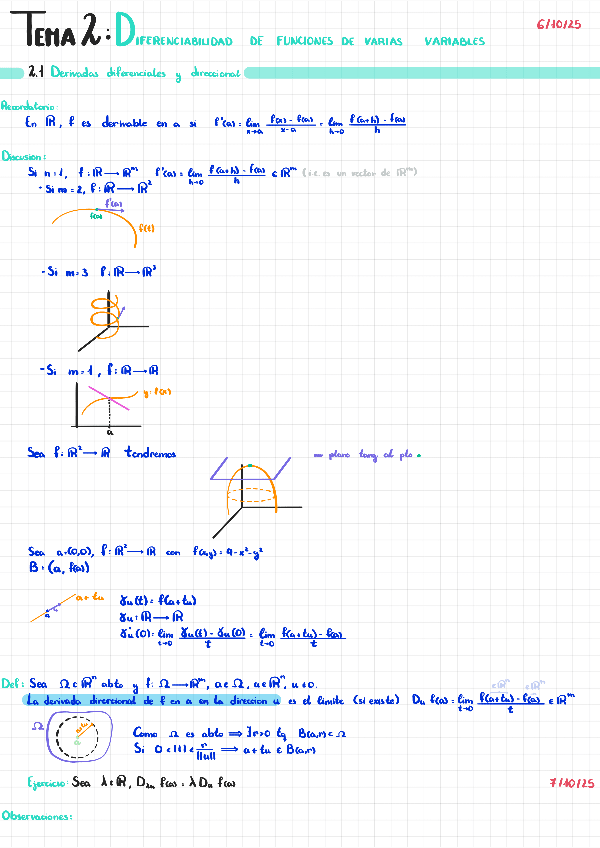 TEMA 2: DIFERENCIABILIDAD DE FUNCIONES DE VARIAS VARIABLES
6/10/25
2.1 Derivadas diferenciales y direccional
Recordatorio:
En ℝ, f es derivable en a si f'(a) = lim x→a f(x) - f(a) / x-a = lim h→0 f(a+h) - f(a) / h
Discusion:
Si n=1, f: ℝ → ℝᵐ f'(a) = lim h→0 f(a+h) - f(a) / h ∈ ℝᵐ (i.e. es un vector de ℝᵐ)
- Si m=2, f: ℝ → ℝ²
f'(a)
f(a)
f(t)
- Si m=3 f: ℝ → ℝ³
- Si m=1, f: ℝ → ℝ
y=f(x)
a
Sea f: ℝ² → ℝ tendremos
plano tang al pto
Sea a=(0,0), f: ℝ² → ℝ con f(x,y) = 9-x²-y²
B=(a, f(a))
a+tu
a
u
γu(t) = f(a+tu)
γu: ℝ → ℝ
γu'(0) = lim t→0 γu(t) - γu(0) / t = lim t→0 f(a+tu) - f(a) / t
Def: Sea Ω ⊂ ℝⁿ abto y f: Ω → ℝᵐ, a ∈ Ω, u ∈ ℝⁿ, u ≠ 0.
La derivada direccional de f en a en la direccion u es el limite (si existe) Du f(a) = lim t→0 f(a+tu) - f(a) / t ∈ ℝᵐ
∈ℝᵐ ∈ℝᵐ
Ω
a+tu
a
Como Ω es abto ⟹ ∃ r>0 tq B(a,r) ⊂ Ω
Si 0<|t|< r / ||u|| ⟹ a+tu ∈ B(a,r)
Ejercicio: Sea λ ∈ ℝ, Dλu f(a) = λ Du f(a)
7/10/25
Observaciones: